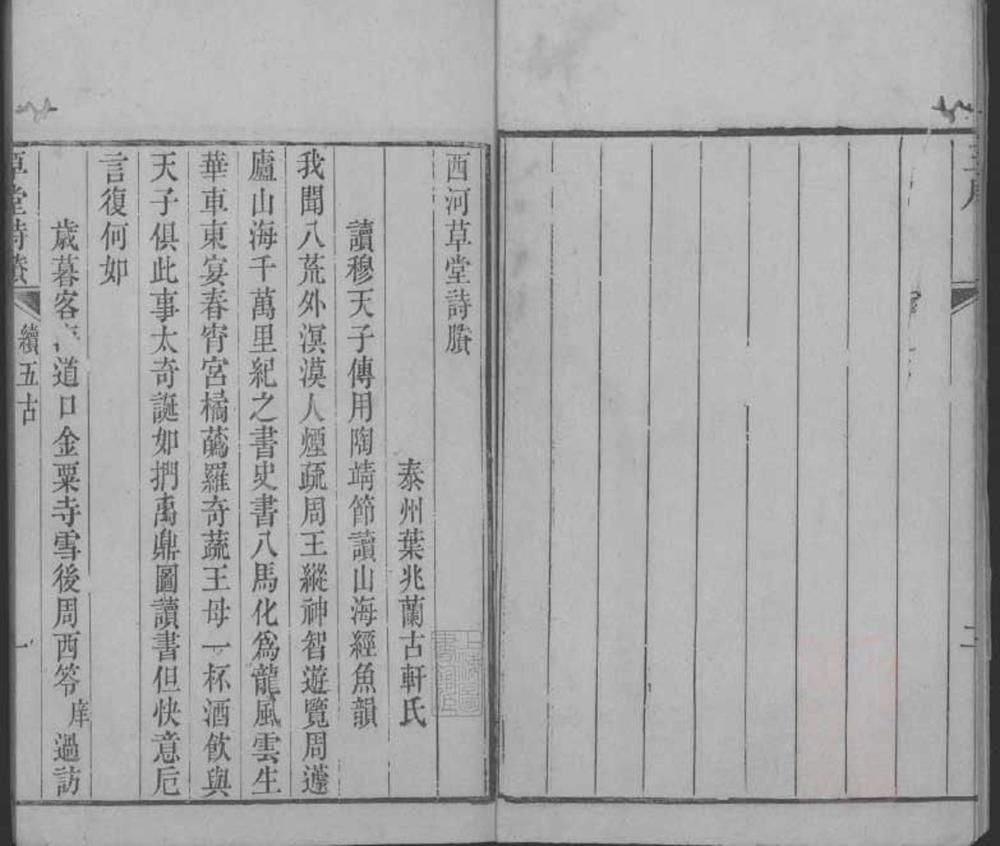 西河草堂詩賸
泰州葉兆蘭古軒氏
讀穆天子傳用陶靖節讀山海經魚韻
我聞八荒外溟漠人煙疏周王縱神智遊覽周蘧
廬山海千萬里紀之書史書八馬化為龍風雲生
華車東宴春宵宮橘藨羅奇蔬王母一杯酒飲與
天子俱此事太奇誕如捫禹鼎圖讀書但快意卮
言復何如
歲暮客道口金粟寺雪後周西笭庠過訪
草堂詩賸
續五古
一